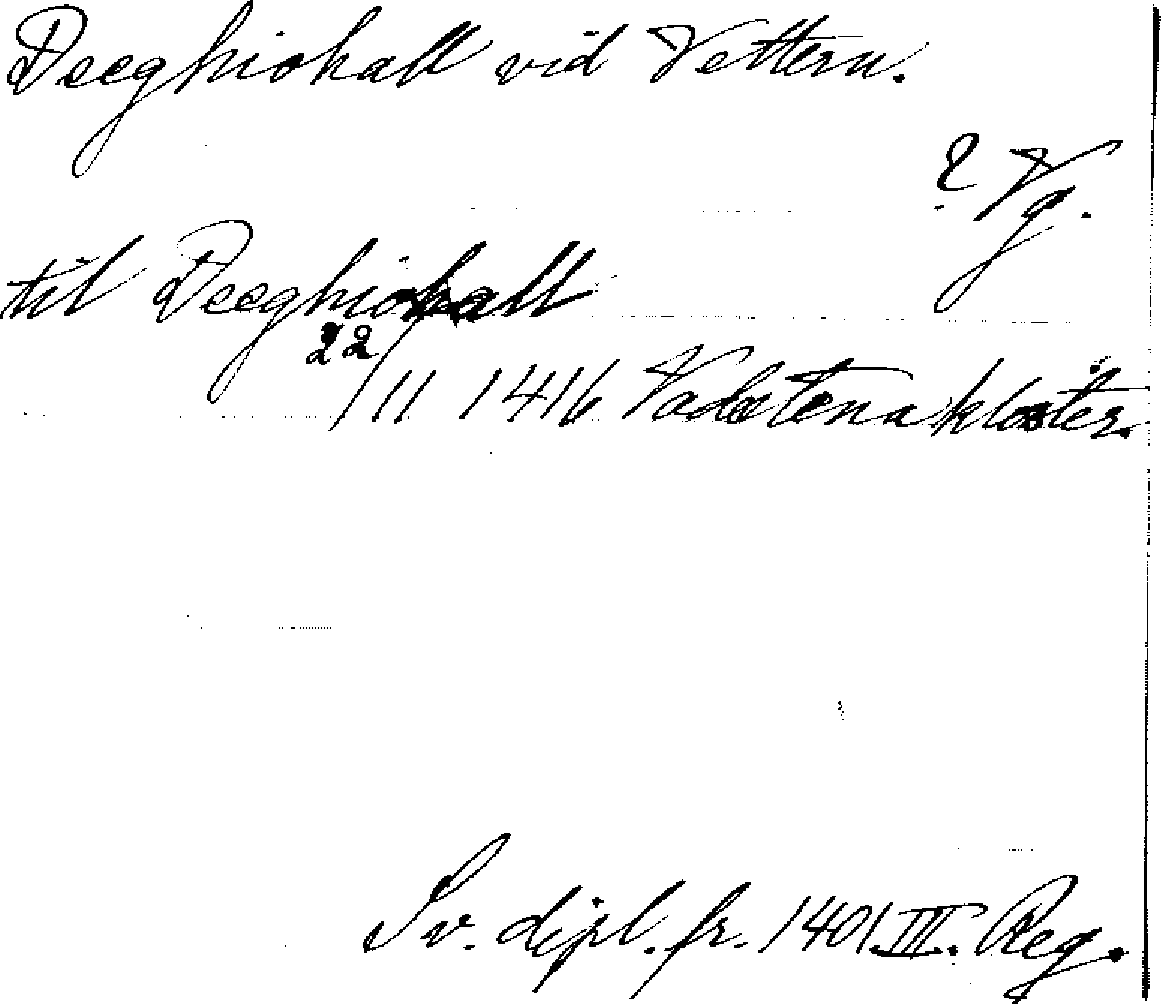 Deeghiohall vid Vettern.
? Vg.
til Deeghiohall
22/11 1416 Vadstena kloster.
Sv. dipl. fr. 1401 III. Reg.